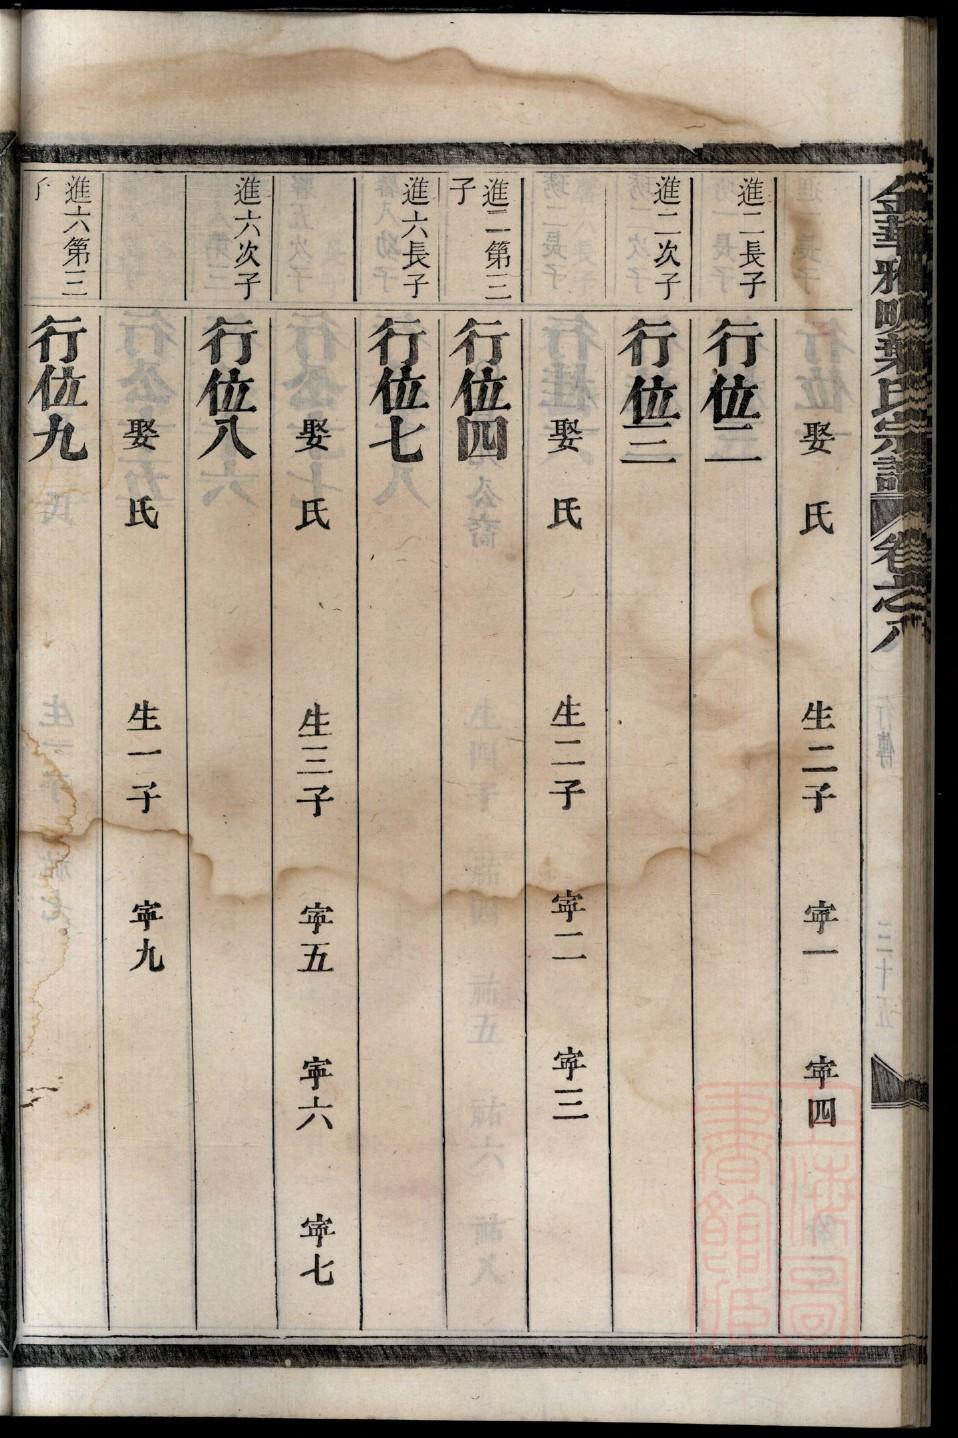 金華雅畈葉氏宗譜 卷之八 行傳 三十五
娶氏 生二子 寕一 寕四
進二長子 行位二
進二次子 行位三
娶氏 生二子 寕二 寕三
進二第三子 行位四
進六長子 行位七
娶氏 生三子 寕五 寕六 寕七
進六次子 行位八
娶氏 生一子 寕九
進六第三子 行位九
上海圖書館藏